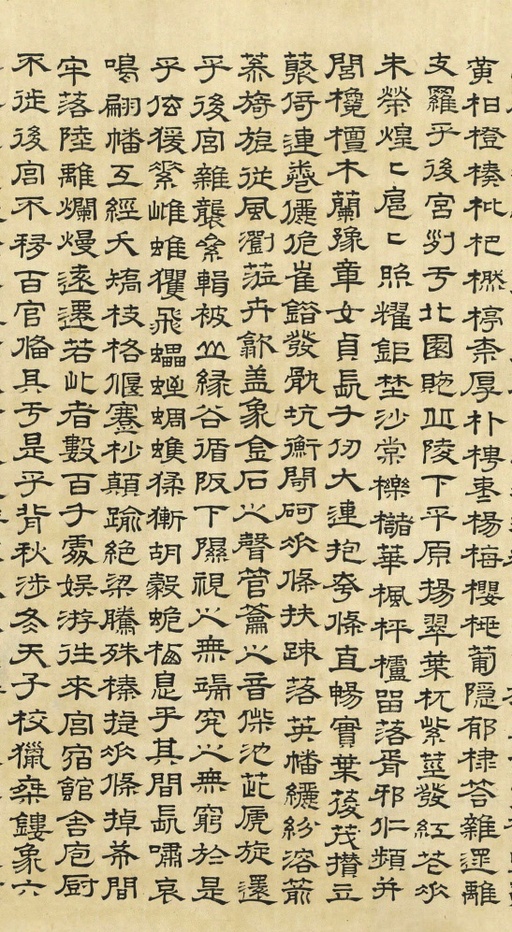 黄柑橙楱枇杷橪楟柰厚朴梬棗楊梅櫻桃葡隱郁棣荅雜遝離
支羅乎後宮列乎北園貤丘陵下平原揚翠葉杌紫莖發红花垂
朱榮煌〻扈〻照耀鉅埜沙棠櫟櫧華楓枰櫨留落胥邪仁頻并
閭欃檀木蘭豫章女貞長千仞大連抱夸條直暢實葉葰茂攢立
藂倚連卷儷佹崔錯發骫坑衡閜砢垂條扶踈落英幡纚紛溶萷
蔘猗旎從風瀏莅卉歙盖象金石之聲管籥之音傑池茈虒旋還
乎後宮雜襲絫輯被山緣谷循阪下隰視之無端究之無窮於是
乎玄猨素雌蜼玃飛蠝蛭蜩蠷猱獑胡豰蛫栖息乎其間長嘯哀
鳴翩幡互經夭矯枝格偃蹇杪顛踰絕梁騰殊榛捷垂條掉希間
牢落陸離爛熳遠遷若此者數百千處娛游往來宮宿館舍庖厨
不徙後宫不移百官偹具乎是乎背秋涉冬天子校獵椉鏤象六